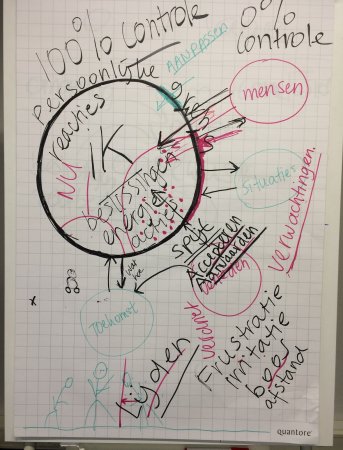 100% controle
0%
controle
persoonlijke
AANPASSEN
reacties
mensen
IK
NU
beslissingen
energie
acties
situaties
spijt
Accepteren
Aanvaarden
verwachtingen
Toekomst
verdriet
Frustratie
irritatie
boos
afstand
Lijden
quantore